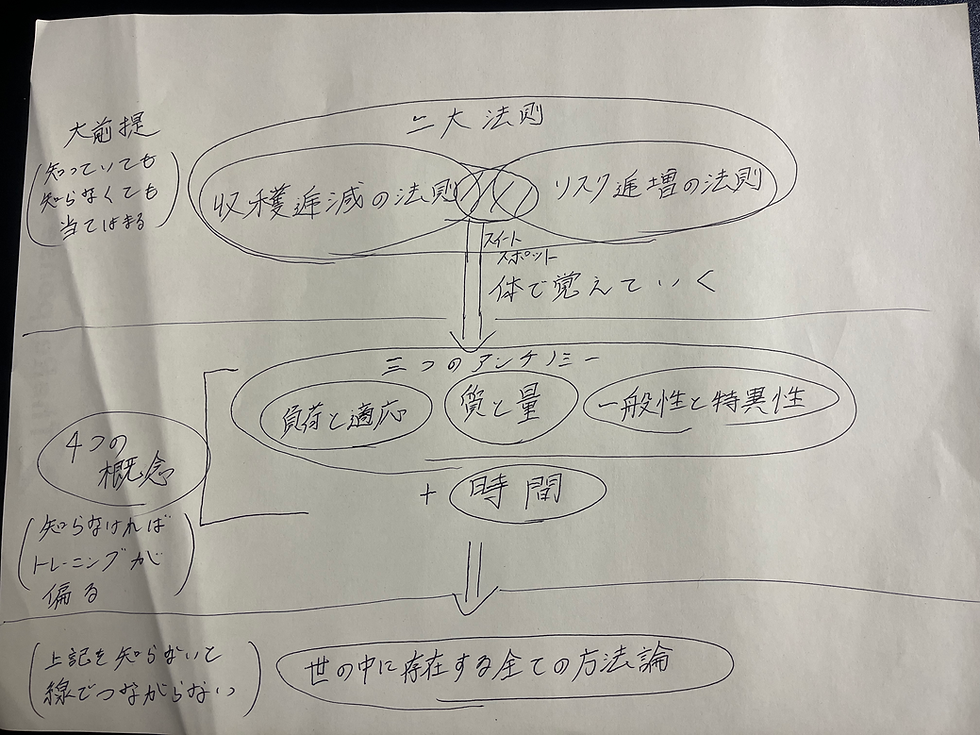 二大法則
大前提
(知っていても
知らなくても
当てはまる)
収穫逓減の法則
リスク逓増の法則
スイート
スポット
体で覚えていく
三つのアンチノミー
負荷と適応
質と量
一般性と特異性
4つの
概念
+ 時間
(知らなければ
トレーニングが
偏る)
(上記を知らないと
線でつながらない)
世の中に存在する全ての方法論